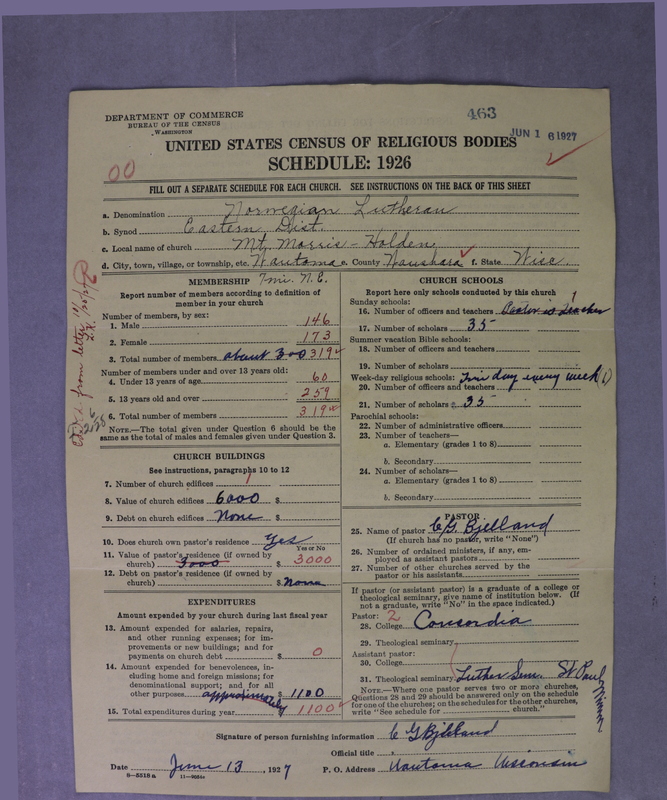 DEPARTMENT OF COMMERCE
BUREAU OF THE CENSUS
WASHINGTON
463
JUN 16 1927
UNITED STATES CENSUS OF RELIGIOUS BODIES
SCHEDULE: 1926
00
FILL OUT A SEPARATE SCHEDULE FOR EACH CHURCH. SEE INSTRUCTIONS ON THE BACK OF THIS SHEET
a. Denomination Norwegian Lutheran
b. Synod Eastern Dist.
c. Local name of church Mt. Morris - Holden
d. City, town, village, or township, etc. Wautoma e. County Waushara f. State Wisc.
MEMBERSHIP
Report number of members according to definition of
member in your church
Number of members, by sex:
1. Male 146
2. Female 173
3. Total number of members about 300 319
Number of members under and over 13 years old:
4. Under 13 years of age 60
5. 13 years old and over 259
6. Total number of members 319
NOTE.—The total given under Question 6 should be the
same as the total of males and females given under Question 3.
CHURCH BUILDINGS
See instructions, paragraphs 10 to 12
7. Number of church edifices 1
8. Value of church edifices 6000 $
9. Debt on church edifices None $
10. Does church own pastor's residence? Yes
Yes or No
11. Value of pastor's residence (if owned by
church) 3000 $ 3000
12. Debt on pastor's residence (if owned by
church) $ None
EXPENDITURES
Amount expended by your church during last fiscal year
13. Amount expended for salaries, repairs,
and other running expenses; for im-
provements or new buildings; and for
payments on church debt $ 0
14. Amount expended for benevolences, in-
cluding home and foreign missions; for
denominational support; and for all
other purposes approximately $ 1100
15. Total expenditures during year 1100
CHURCH SCHOOLS
Report here only schools conducted by this church
Sunday schools:
16. Number of officers and teachers Pastor is teacher 1
17. Number of scholars 35
Summer vacation Bible schools:
18. Number of officers and teachers
19. Number of scholars
Week-day religious schools: day every week (1)
20. Number of officers and teachers
21. Number of scholars 35
Parochial schools:
22. Number of administrative officers
23. Number of teachers—
a. Elementary (grades 1 to 8)
b. Secondary
24. Number of scholars—
a. Elementary (grades 1 to 8)
b. Secondary
PASTOR
25. Name of pastor C G Bjelland
(If church has no pastor, write "None")
26. Number of ordained ministers, if any, em-
ployed as assistant pastors
27. Number of other churches served by the
pastor or his assistants
If pastor (or assistant pastor) is a graduate of a college or
theological seminary, give name of institution below. (If
not a graduate, write "No" in the space indicated.)
Pastor: 2
28. College Concordia
29. Theological seminary
Assistant pastor:
30. College
31. Theological seminary Luther Sem. St Paul Minn
NOTE.—Where one pastor serves two or more churches,
Questions 28 and 29 should be answered only on the schedule
for one of the churches; on the schedules for the other churches,
write "See schedule for church."
Signature of person furnishing information C G Bjelland
Official title
Date June 13, 1927 P. O. Address Wautoma Wisconsin
8—5518a 11—9051